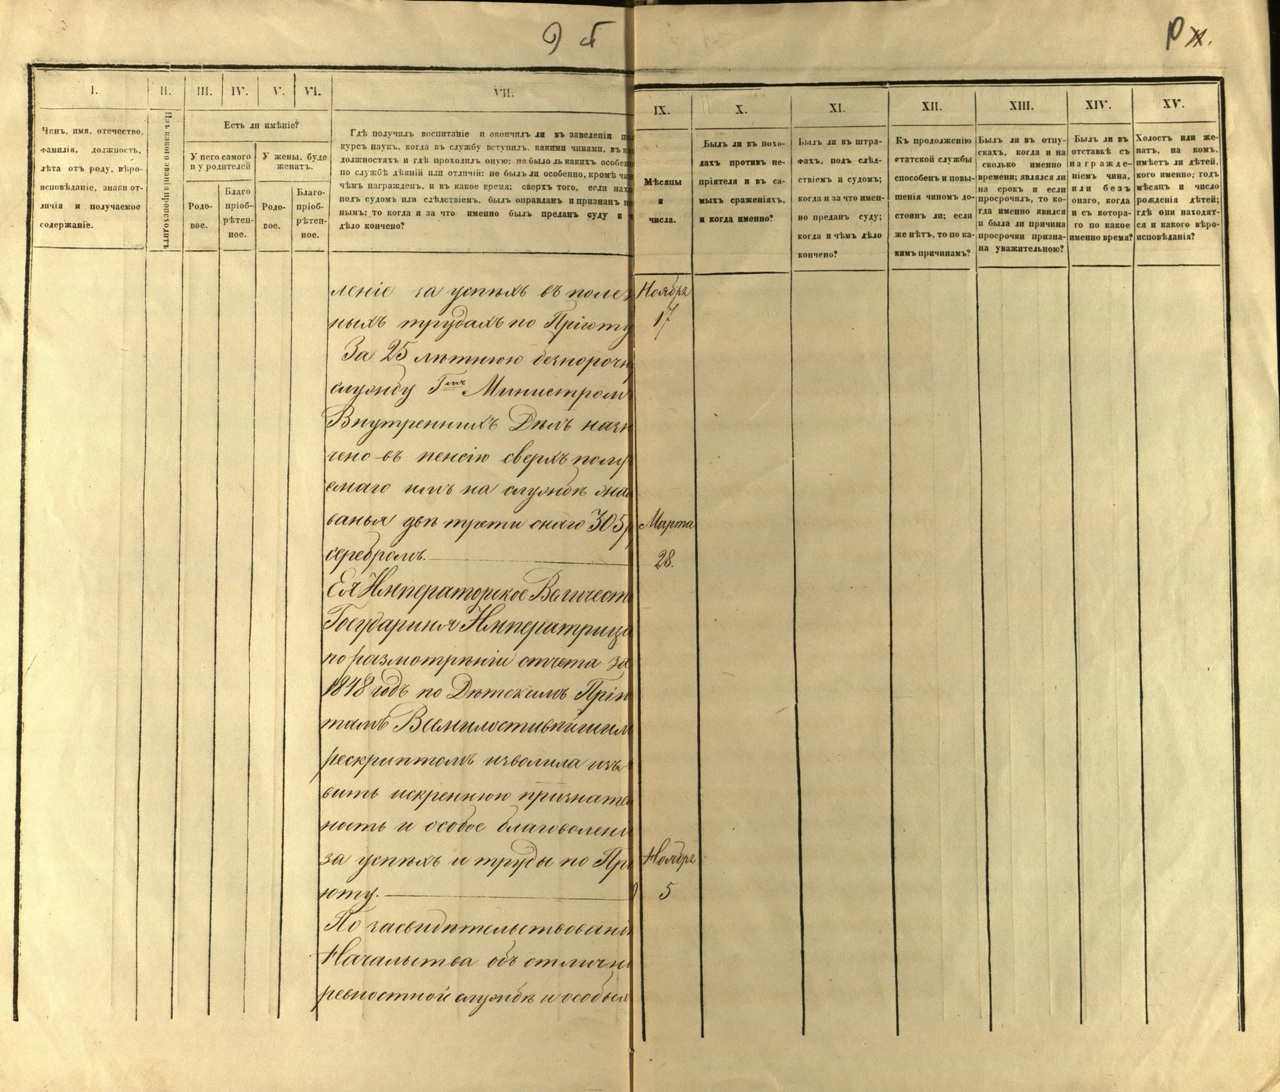 I.
Чинъ, имя, отчество,
фамилія, должность,
лѣта отъ роду, вѣро-
исповѣданіе, знаки от-
личія и получаемое
содержаніе.
II.
Изъ какого званія происходитъ.
III. IV. V. VI.
Есть ли имѣніе?
У него самого
и у родителей
У жены, буде
женатъ.
Родо-
вое.
Благо
пріоб-
рѣтен-
ное.
Родо-
вое.
Благо-
пріоб-
рѣтен-
ное.
VII.
Гдѣ получилъ воспитаніе и окончилъ ли въ заведеніи
курсъ наукъ, когда въ службу вступилъ, какими чинами, въ
должностяхъ и гдѣ проходилъ оную: не было ль какихъ особен
по службѣ дѣяній или отличій: не былъ ли особенно, кромѣ
чѣмъ награжденъ, и въ какое время: сверхъ того, если
подъ судомъ или слѣдствіемъ, былъ оправданъ и признанъ
нымъ: то когда и за что именно былъ преданъ суду и
дѣло кончено?
IX.
Мѣсяцы
и
числа.
X.
Былъ ли въ похо-
дахъ противъ не-
пріятеля и въ са-
мыхъ сраженіяхъ,
и когда именно?
XI.
Былъ ли въ штра-
фахъ, подъ слѣд-
ствіемъ и судомъ;
когда и за что имен-
но преданъ суду;
когда и чѣмъ дѣло
кончено?
XII.
Къ продолженію
статской службы
способенъ и повы-
шенія чиномъ до-
стоинъ ли; если
же нѣтъ, то по ка-
кимъ причинамъ?
XIII.
Былъ ли въ отпу-
скахъ, когда и на
сколько именно
времени; являлся ли
на срокъ и если
просрочилъ, то ко-
гда именно явился
и была ли причина
просрочки призна-
на уважительною?
XIV.
Былъ ли въ
отставкѣ съ
награжде-
ніемъ чина,
или безъ
онаго, когда
и съ котора-
го по какое
именно время?
XV.
Холостъ или же-
натъ, на комъ,
имѣетъ ли дѣтей,
кого именно; годъ
мѣсяцъ и число
рожденія дѣтей;
гдѣ они находят-
ся и какого вѣро-
исповѣданія?
леніе за успѣхъ въ полез Ноября
ныхъ трудахъ по Пріюту 17
За 25 лѣтнюю безпорочн
службу Г. Министромъ
Внутреннихъ Дѣлъ назн
чено въ пенсію сверхъ полу
емаго имъ на службѣ жало
ванья двѣ трети онаго 305 р Марта
серебромъ. 28.
Ея Императорское Величест
Государыня Императрица
по размотрѣніи отчета за
1848 годъ по Дѣтскимъ Прію
тамъ Всемилостивѣйшимъ
рескриптомъ изволила изъя
вить искреннюю признател
ность и особое благоволени
за успѣхъ и труды по Прі Ноября
юту. 5
По засвидѣтельствованію
Начальства объ отлично
ревностной службѣ и особых